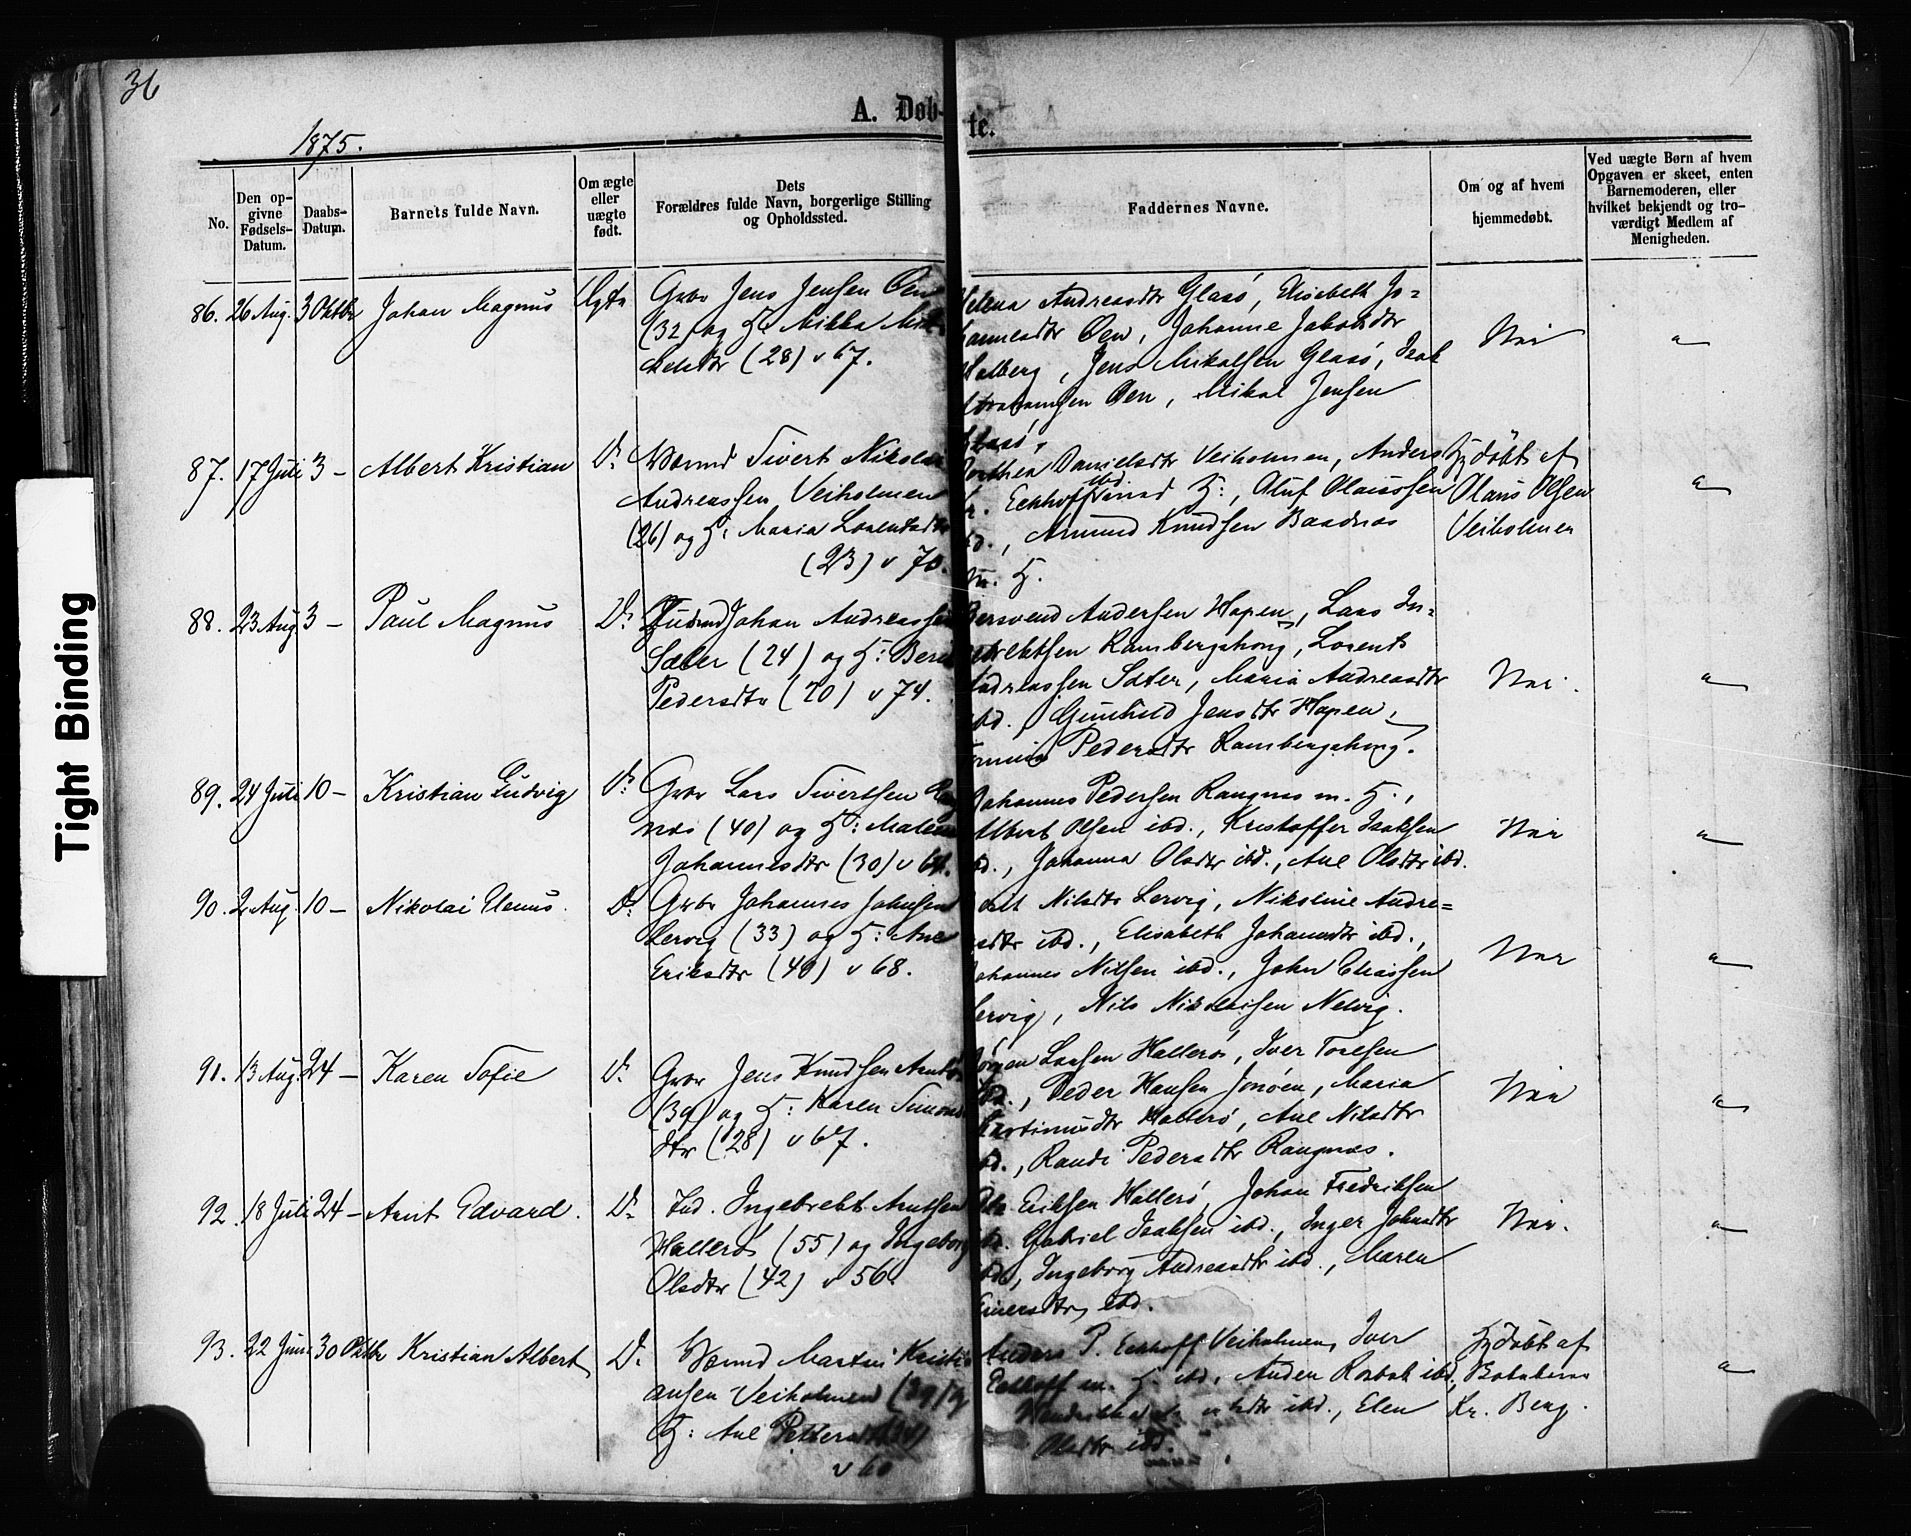 36
A. Døb-
te.
1875.
No.
Den op-
givne
Fødsels-
Datum.
Daabs-
Datum.
Barnets fulde Navn.
Om ægte
eller
uægte
født.
Dets
Forældres fulde Navn, borgerlige Stilling
og Opholdssted.
Faddernes Navne.
Om og af hvem
hjemmedøbt.
Ved uægte Børn af hvem
Opgaven er skeet, enten
Barnemoderen, eller
hvilket bekjendt og tro-
værdigt Medlem af
Menigheden.
86. 26 Aug. 3 Oktbr Johan Magnus Ægte Gbr Jens Jensen Øen
(32) og H: Mikka Mik
kelsdtr (28) v 67.
Helena Andreasdtr Glasø, Elisebeth Jo-
hannesdtr Øen, Johanne Jakobsdtr
Halberg, Jens Mikalsen Glasø, Isak
Abrahamsen Øen, Mikal Jensen
Glasø.
Nei
"
87. 17 Juli 3 — Albert Kristian Do Sivert Nikolai
Andreassen Veiholmen
(26) og H: Maria Lorentsdtr
(23) v 70.
Dorthea Danielsdtr Veiholmen, Anders
Eckhoff ibd H:, Oluf Olaussen
ibd., Amund Knudsen Baadnæs
m. H.
Hjdöbt af
Olaus Olsen
Veiholmen
"
88. 23 Aug 3 — Paul Magnus Do Johan Andreassen
Sæter (24) og H: Bere
Pedersdtr (20) v 74.
Bersvend Andersen Hopen, Lars In-
gebrektsen Ramsbergshong, Lorents
Andreassen Sæter, Maria Andreasdtr
ibd. Gunhild Jensdtr Hopen,
Pedersdtr Ramsbergshong.
Nei.
"
89. 24 Juli 10 — Kristian Ludvig Do Gbr Lars Sivertsen Rang
næs (40) og H: Malene
Johannesdtr (30) v 64.
Johannes Pedersen Rangnæs m. H.,
Albert Olsen ibd., Kristoffer Isaksen
ibd., Johanna Olsdtr ibd., Ane Olsdtr ibd.
Nei
"
90. 2 Aug. 10 — Nikolai Elenus. Do Gbr Johannes Johnsen
Lervig (33) og H: Ane
Eriksdtr (40) v 68.
Berit Nilsdtr Lervig, Nikoline Andre-
asdtr ibd., Elisabeth Johansdtr ibd.,
Johannes Nilsen ibd., John Eliassen
Lervig, Nils Nikolaisen Nelvig.
Nei
"
91. 13 Aug. 24 — Karen Sofie Do Gbr Jens Knudsen
(39) og H: Karen Simons
dtr (28) v 67.
Jørgen Larsen Hallerö, Iver Toresen
ibd., Peder Hansen Jonøen, Maria
Martinusdtr Hallerö, Ane Nilsdtr
ibd., Randi Pedersdtr Rangnæs.
Nei
"
92. 18 Juli 24 — Arnt Edvard. Do Ind. Ingebrekt Arntsen
Hallerö (55) og Ingeborg
Olsdtr (42) v 56
Eriksen Hallerö, Johan Fredriksen
ibd. Gabriel Isaksen ibd., Inger Johnsdtr
ibd., Ingeborg Andreasdtr ibd., Maren
Einersdtr, ibd.
Nei.
"
93. 22 Juni 30 Oktbr Kristian Albert Do Martin Kristi
ansen Veiholmen (39) og
H: Ane Pettersdtr (34)
v 60
Anders P. Eckhoff Veiholmen, Iver
Eckhoff m. H. ibd. ibd,
ibd., Elen
Olsdtr ibd.
Hjdöbt af
Kr. Berg.
"
Tight Binding